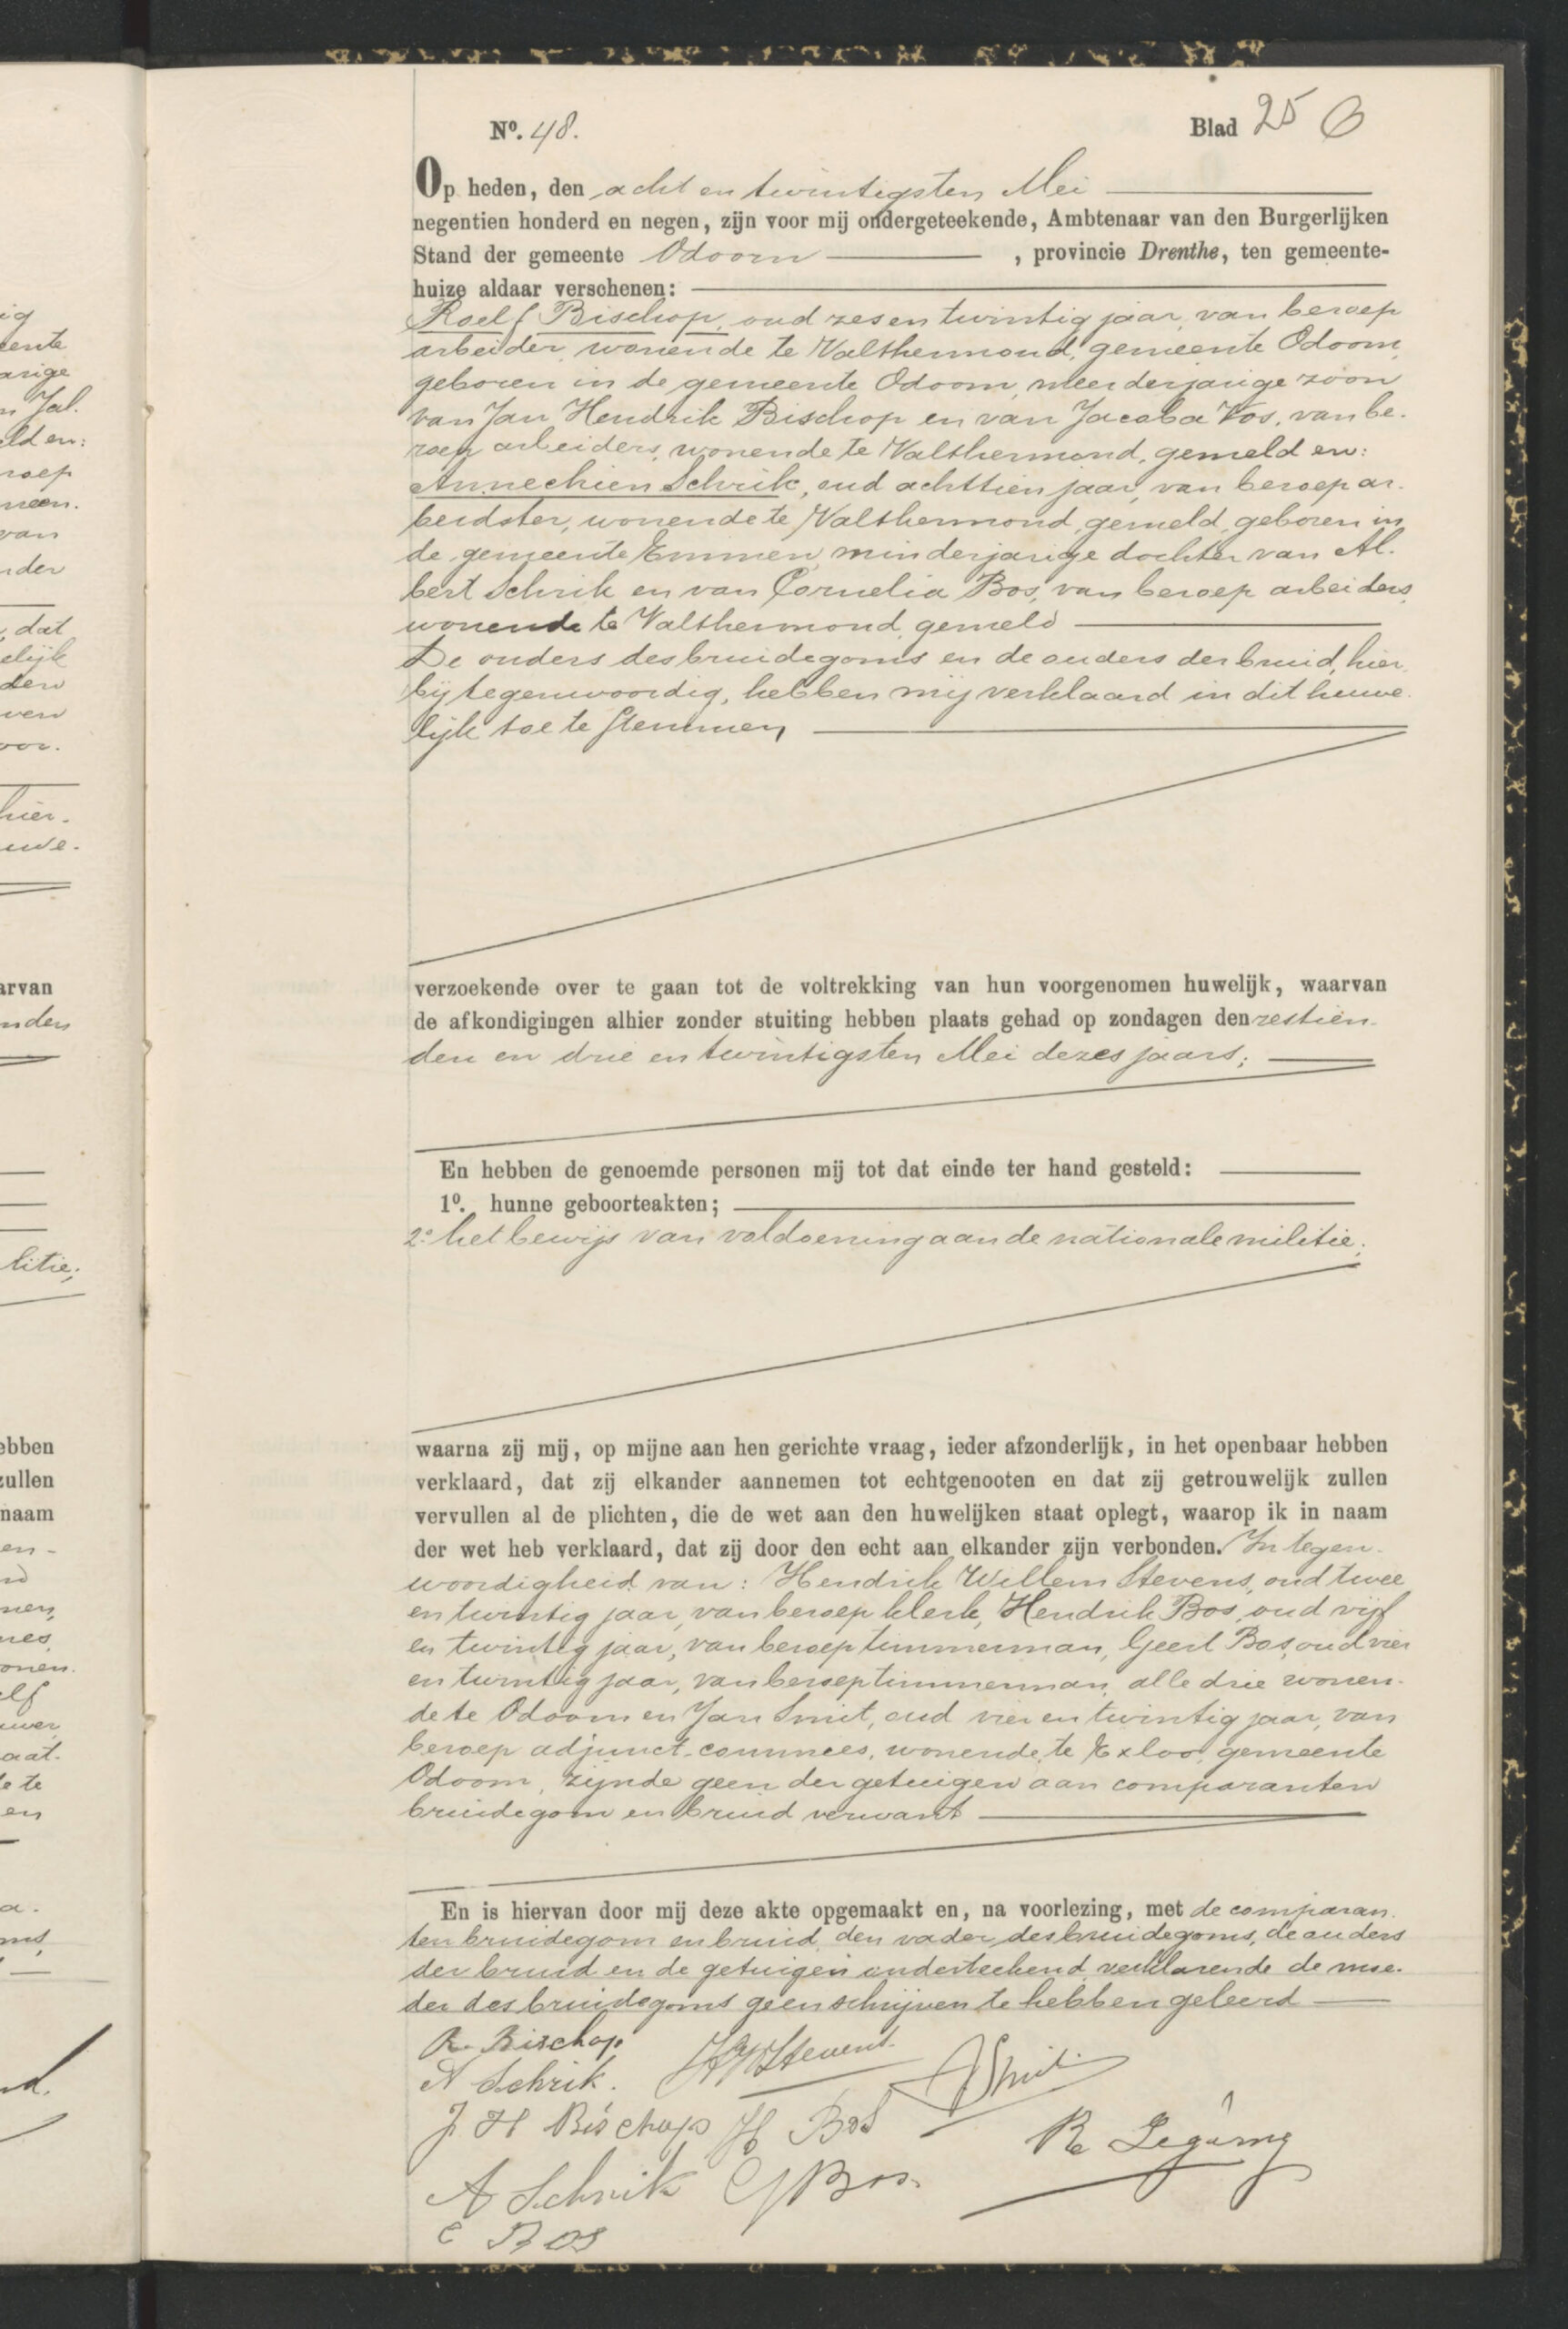 Nº. 48.
Blad 25
Op heden, den acht en twintigsten Mei
negentien honderd en negen, zijn voor mij ondergeteekende, Ambtenaar van den Burgerlijken
Stand der gemeente Odoorn , provincie Drenthe, ten gemeente-
huize aldaar verschenen:
Roelf Bischop, oud zes en twintig jaar, van beroep
arbeider, wonende te Valthermond, gemeente Odoorn,
geboren in de gemeente Odoorn, meerderjarige zoon
van Jan Hendrik Bischop en van Jacoba Vos, van be-
roep arbeiders, wonende te Valthermond, gemeld en:
Annechien Schrik, oud achttien jaar, van beroep ar-
beidster, wonende te Valthermond, gemeld, geboren in
de gemeente Emmen, minderjarige dochter van Al-
bert Schrik en van Cornelia Bos, van beroep arbeiders,
wonende te Valthermond, gemeld
De ouders des bruidegoms en de ouders der bruid, hier
bij tegenwoordig, hebben mij verklaard in dit huwe-
lijk toe te stemmen
verzoekende over te gaan tot de voltrekking van hun voorgenomen huwelijk, waarvan
de afkondigingen alhier zonder stuiting hebben plaats gehad op zondagen den zestien-
den en drie en twintigsten Mei dezes jaars;
En hebben de genoemde personen mij tot dat einde ter hand gesteld:
1º. hunne geboorteakten;
2º het bewijs van voldoening aan de nationale militie;
waarna zij mij, op mijne aan hen gerichte vraag, ieder afzonderlijk, in het openbaar hebben
verklaard, dat zij elkander aannemen tot echtgenooten en dat zij getrouwelijk zullen
vervullen al de plichten, die de wet aan den huwelijken staat oplegt, waarop ik in naam
der wet heb verklaard, dat zij door den echt aan elkander zijn verbonden. In tegen-
woordigheid van: Hendrik Willem Stevens, oud twee
en twintig jaar, van beroep klerk, Hendrik Bos, oud vijf
en twintig jaar, van beroep timmerman, Geert Bos, oud vier
en twintig jaar, van beroep timmerman, alle drie wonen-
de te Odoorn en Jan Smit, oud vier en twintig jaar, van
beroep adjunct-commies, wonende te Exloo, gemeente
Odoorn, zijnde geen der getuigen aan comparanten
bruidegom en bruid verwant
En is hiervan door mij deze akte opgemaakt en, na voorlezing, met de comparan-
ten bruidegom en bruid, den vader des bruidegoms, de ouders
der bruid en de getuigen onderteekend, verklarende de moe-
der des bruidegoms geen schrijven te hebben geleerd
R. Bischop
HWStevens.
A Schrik.
JSmit.
J H Bischop
H Bos
A Schrik
G Bos.
C Bos